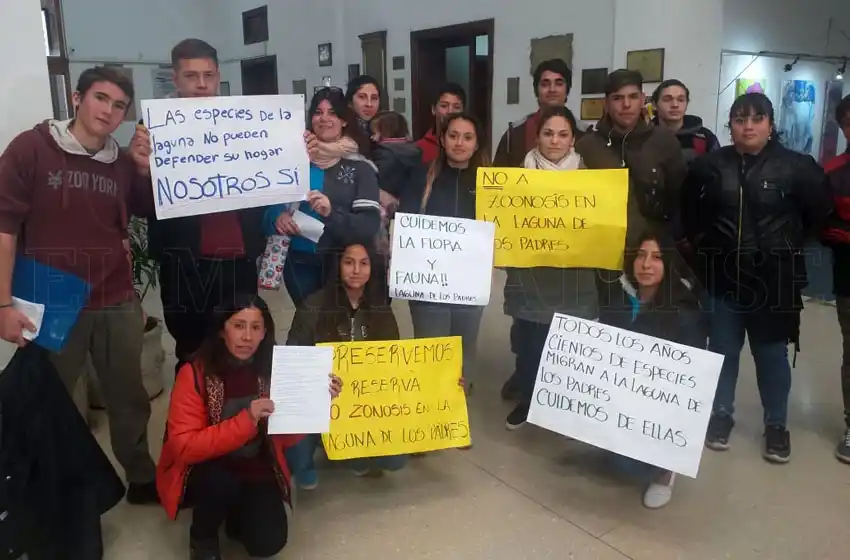 LAS ESPECIES DE LA
LAGUNA NO PUEDEN
DEFENDER SU HOGAR
NOSOTROS SÍ
CUIDEMOS
LA FLORA
Y
FAUNA!!
LAGUNA DE LOS PADRES
NO A
ZOONOSIS EN
LA LAGUNA DE
LOS PADRES
PRESERVEMOS
RESERVA
NO ZONOSIS EN LA
LAGUNA DE LOS PADRES
TODOS LOS AÑOS
CIENTOS DE ESPECIES
MIGRAN A LA LAGUNA DE
LOS PADRES
CUIDEMOS DE ELLAS
ZOO YORK